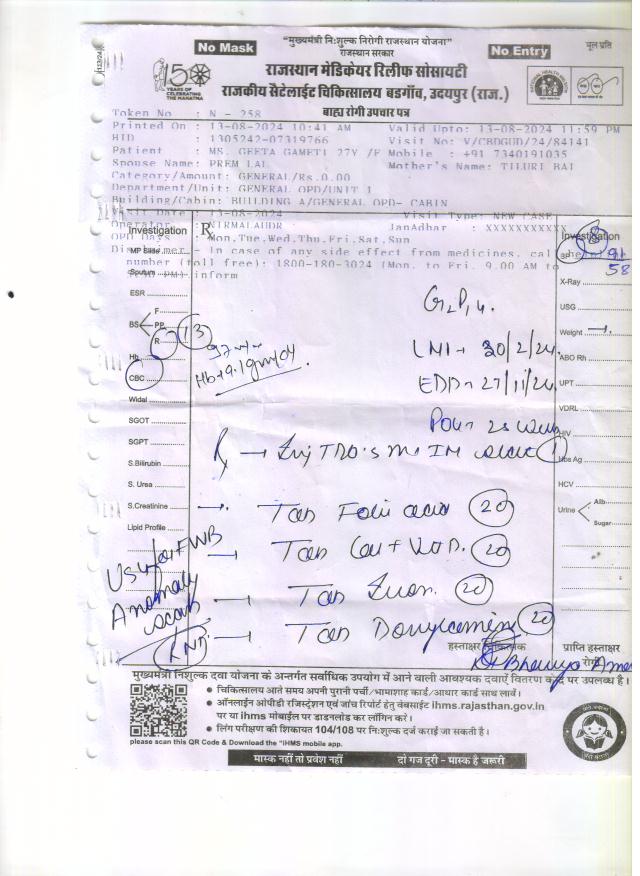 "मुख्यमंत्री निःशुल्क निरोगी राजस्थान योजना"
No Mask
राजस्थान सरकार
No Entry
मूल प्रति
राजस्थान मेडिकेयर रिलीफ सोसायटी
150 YEARS OF CELEBRATING THE MAHATMA
राजकीय सैटेलाईट चिकित्सालय बडगाँव, उदयपुर (राज.)
NATIONAL HEALTH MISSION
बाह्य रोगी उपचार पत्र
Token No : N - 258
Printed On : 13-08-2024 10:41 AM Valid Upto: 13-08-2024 11:59 PM
HID : 1305242-07319766 Visit No: V/CBDGUD/24/84141
Patient : MS. GEETA GAMETI 27Y /F Mobile : +91 7340191035
Spouse Name: PREM LAL Mother's Name: TILURI BAI
Category/Amount: GENERAL/Rs.0.00
Department/Unit: GENERAL OPD/UNIT 1
Building/Cabin: BUILDING A/GENERAL OPD- CABIN
Visit Date : 13-08-2024 Visit Type: NEW CASE
Operator : NIRMALAUDR JanAdhar : XXXXXXXXXXX
OPD Days : Mon,Tue,Wed,Thu,Fri,Sat,Sun
Disclaimer - In case of any side effect from medicines, cal
number (toll free): 1800-180-3024 (Mon. to Fri. 9.00 AM to
PM) inform
Investigation Rx
MP
Sputum
ESR
BS F
PP
R
Hb
CBC
Widal
SGOT
SGPT
S.Bilirubin
S. Urea
S.Creatinine
Lipid Profile
13
Hb → 9.1 gm/dl
G2P1L1
LMP → 20/2/24
EDD → 27/11/24
POG → 25 week
Rx → Inj TD 0.5 ml IM
→ Tab Folic acid 20
→ Tab Cal + Vit D. 20
→ Tab Iron. 20
→ Tab Doxylamine 20
USG for FWB
Anomaly
scan
Investigation
91
58
X-Ray
USG
Weight
ABO Rh
UPT
VDRL
HIV
Hbs Ag
HCV
Urine Alb.
Sugar
हस्ताक्षर चिकित्सक
प्राप्ति हस्ताक्षर
रोगी
मुख्यमंत्री निःशुल्क दवा योजना के अन्तर्गत सर्वाधिक उपयोग में आने वाली आवश्यक दवाऐं वितरण केन्द्र पर उपलब्ध है।
• चिकित्सालय आते समय अपनी पुरानी पर्ची/भामाशाह कार्ड/आधार कार्ड साथ लावें।
• ऑनलाईन ओपीडी रजिस्ट्रेशन एवं जांच रिपोर्ट हेतु वेबसाईट ihms.rajasthan.gov.in
पर या ihms मोबाईल पर डाउनलोड कर लॉगिन करे।
• लिंग परीक्षण की शिकायत 104/108 पर निःशुल्क दर्ज कराई जा सकती है।
please scan this QR Code & Download the "IHMS mobile app.
मास्क नहीं तो प्रवेश नहीं
दो गज दूरी - मास्क है जरूरी